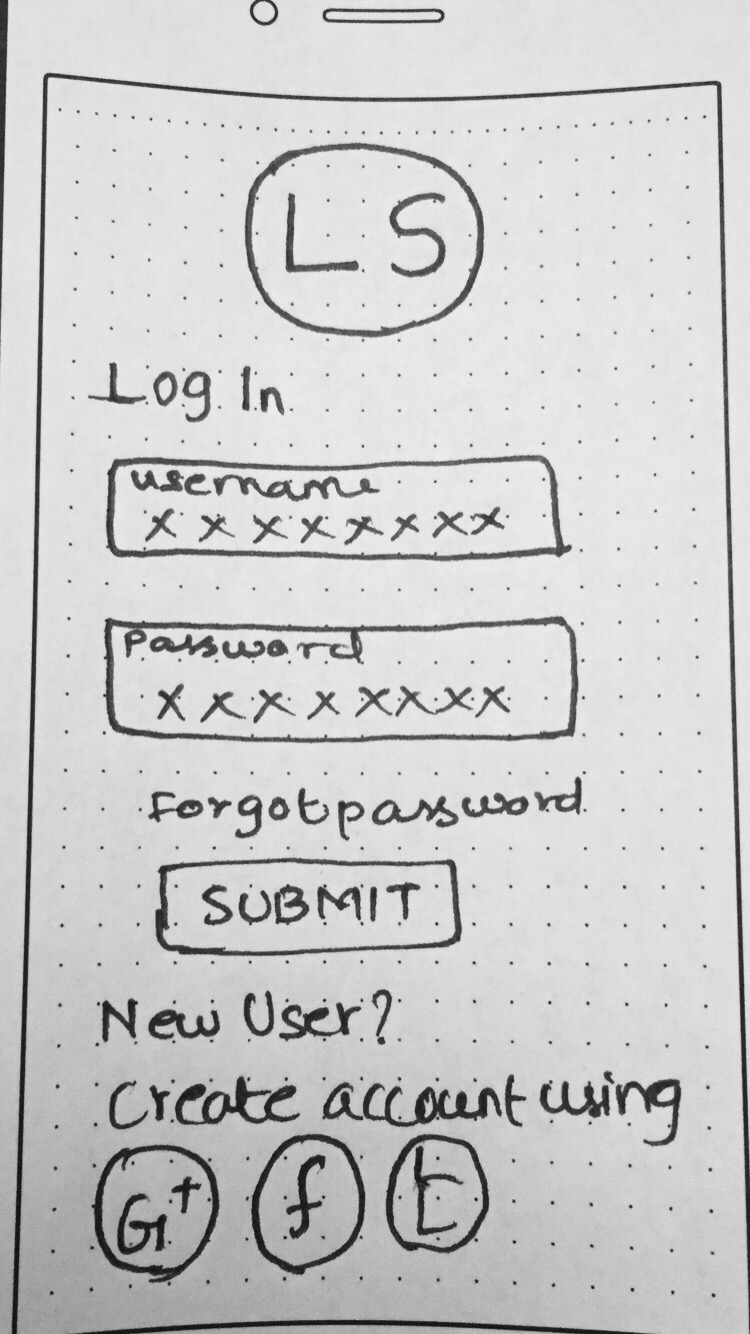 LS
Log In
username
xxxxxxxx
Password
xxxxxxxx
Forgot password
SUBMIT
New User?
Create account using
G+ f t